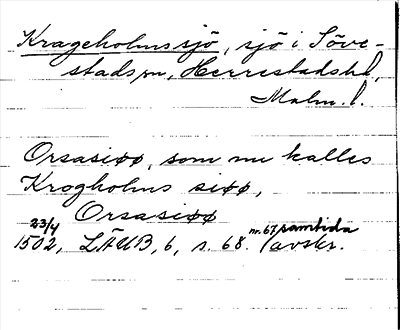 Krageholmssjö, sjö i Söve-
stads sn, Herrestads hd,
Malm. l.
Orsasiøø, som nu kalles
Krogholms siøø,
Orsasiøø
23/4 1502, LÄUB, 6, s. 68. nr. 67, samtida avskr.